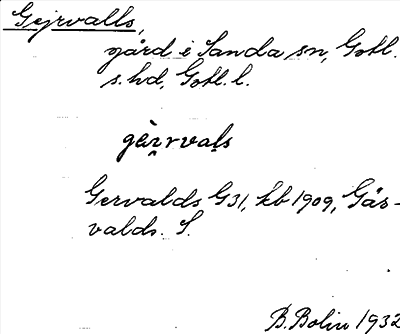 Gejrvalls,
gård i Sanda sn, Gotl.
s. hd, Gotl. l.
gèi̯rvaḷs
Gervalds G31, kb 1909, Gär-
valds. S.
B. Bolin 1932